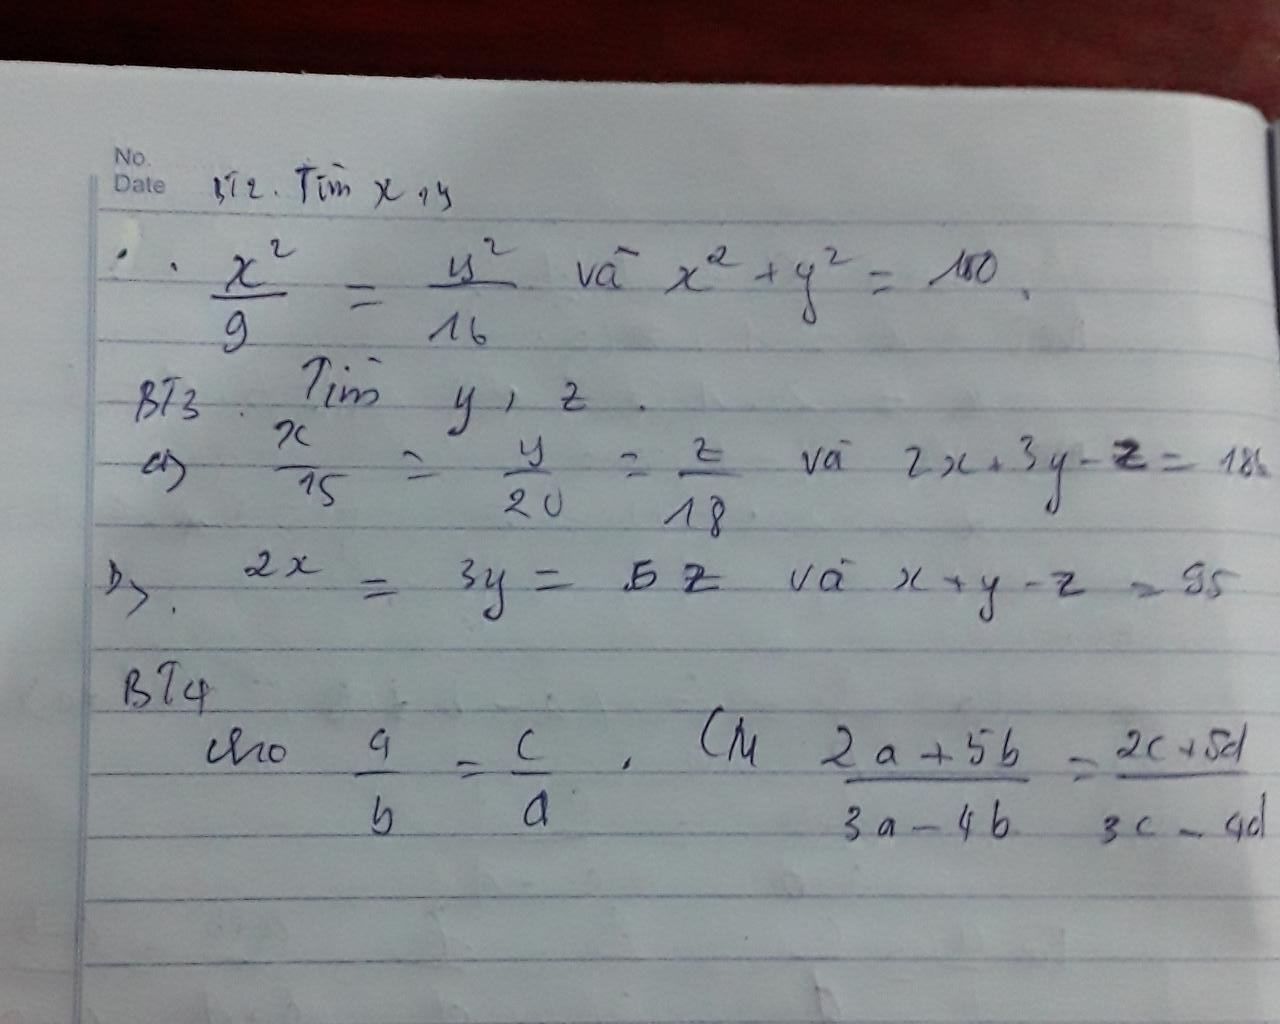 No.
Date BT2. Tìm x, y
x²/9 = y²/16 và x² + y² = 100.
BT3. Tìm y, z.
a) x/15 = y/20 = z/18 và 2x + 3y - z = 186
b). 2x = 3y = 5z và x + y - z = 95
BT4
cho a/b = c/d. CM (2a + 5b)/(3a - 4b) = (2c + 5d)/(3c - 4d)